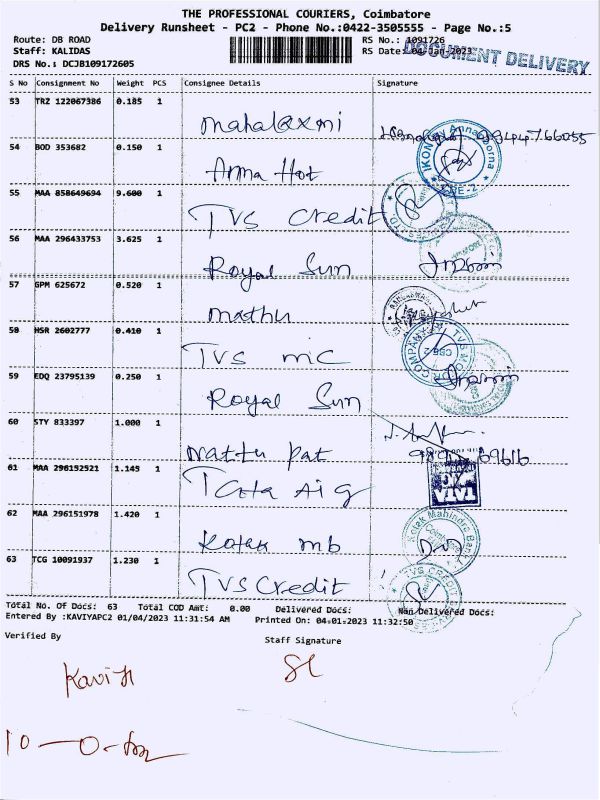 THE PROFESSIONAL COURIERS, Coimbatore
Delivery Runsheet - PC2 - Phone No.:0422-3505555 - Page No.:5
Route: DB ROAD RS No.: 1091726
Staff: KALIDAS RS Date: 04-Jan-2023
DOCUMENT DELIVERY
DRS No.: DCJB109172605
S No Consignment No Weight PCS Consignee Details Signature
53 TRZ 122067386 0.185 1
Mahalaxmi
54 BOD 353682 0.150 1
Anna Hot
55 MAA 858649694 9.600 1
TVS Credit
56 MAA 296433753 3.625 1
Royal Sun
57 GPM 625672 0.520 1
Mathu
58 HSR 2602777 0.410 1
TVS mic
59 EDQ 23795139 0.250 1
Royal Sun
60 STY 833397 1.000 1
Nattu Pat
61 MAA 296152521 1.145 1
Tata Aig
TATA
62 MAA 296151978 1.420 1
Kotak mb
Kotak Mahindra Bank
63 TCG 10091937 1.230 1
TVS Credit
Total No. Of Docs: 63 Total COD Amt: 0.00 Delivered Docs: Non Delivered Docs:
Entered By :KAVIYAPC2 01/04/2023 11:31:54 AM Printed On: 04-01-2023 11:32:50
Verified By Staff Signature